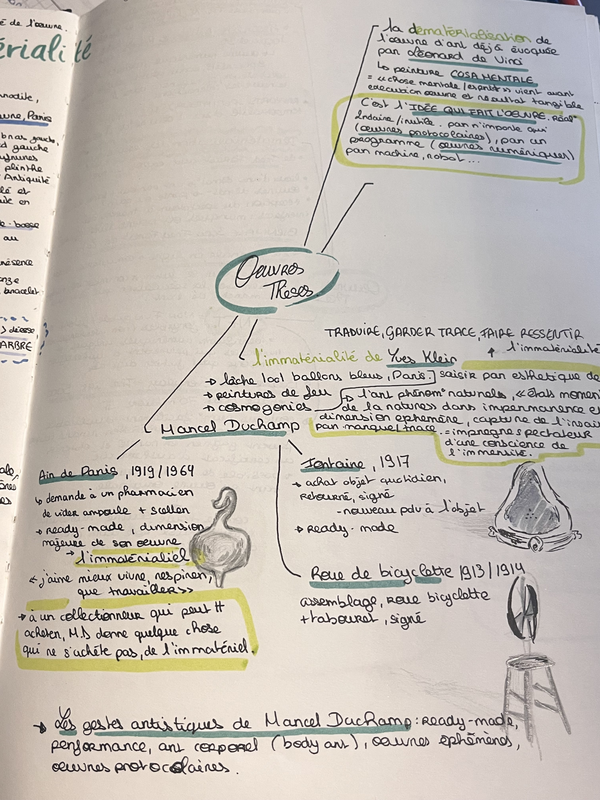 é de l'œuvre.
érialité
uvre, Paris
bras gauche,
d gauche
plinthe
Antiquité
lé et
ute en
e-basse
au
résence
bracelet
ARBRE
la dématérialisation de
l'œuvre d'art déjà évoquée
par Léonard de Vinci
↳ peinture COSA MENTALE
= « chose mentale/esprit » vient avant
exécution œuvre et résultat tangible
C'est l'IDÉE QUI FAIT L'ŒUVRE. Réal°
2ndaire/inutile, par n'importe qui
(œuvres protocolaires), par un
programme (œuvres numériques)
par machine, robot...
Œuvres
Thèses
TRADUIRE, GARDER TRACE, FAIRE RESSENTIR
↑ l'immatérialité
l'immatérialité de Yves Klein
→ lâche 1001 ballons bleus, Paris.
→ peintures de feu
→ cosmogonies
saisir par esthétique de
l'art phénom° naturels, « états momen
de la natures dans impermanence et
dimension éphémère, capture de l'invisi
par marque/trace = imprégner spectateur
d'une conscience de
l'immensité.
Marcel Duchamp
Air de Paris, 1919/1964
↳ demande à un pharmacien
de vider ampoule + sceller
→ ready-made, dimension
majeure de son œuvre
→ l'immatériel
« j'aime mieux vivre, respirer,
que travailler »
→ à un collectionneur qui peut tt
acheter, MD donne quelque chose
qui ne s'achète pas, de l'immatériel.
Fontaine, 1917
→ achat objet quotidien,
retourné, signé
- nouveau pdv à l'objet
→ Ready-made
Roue de bicyclette 1913/1914
assemblage, roue bicyclette
+ tabouret, signé
→ Les gestes artistiques de Marcel Duchamp : ready-made,
performance, art corporel (body art), œuvres éphémères,
œuvres protocolaires.